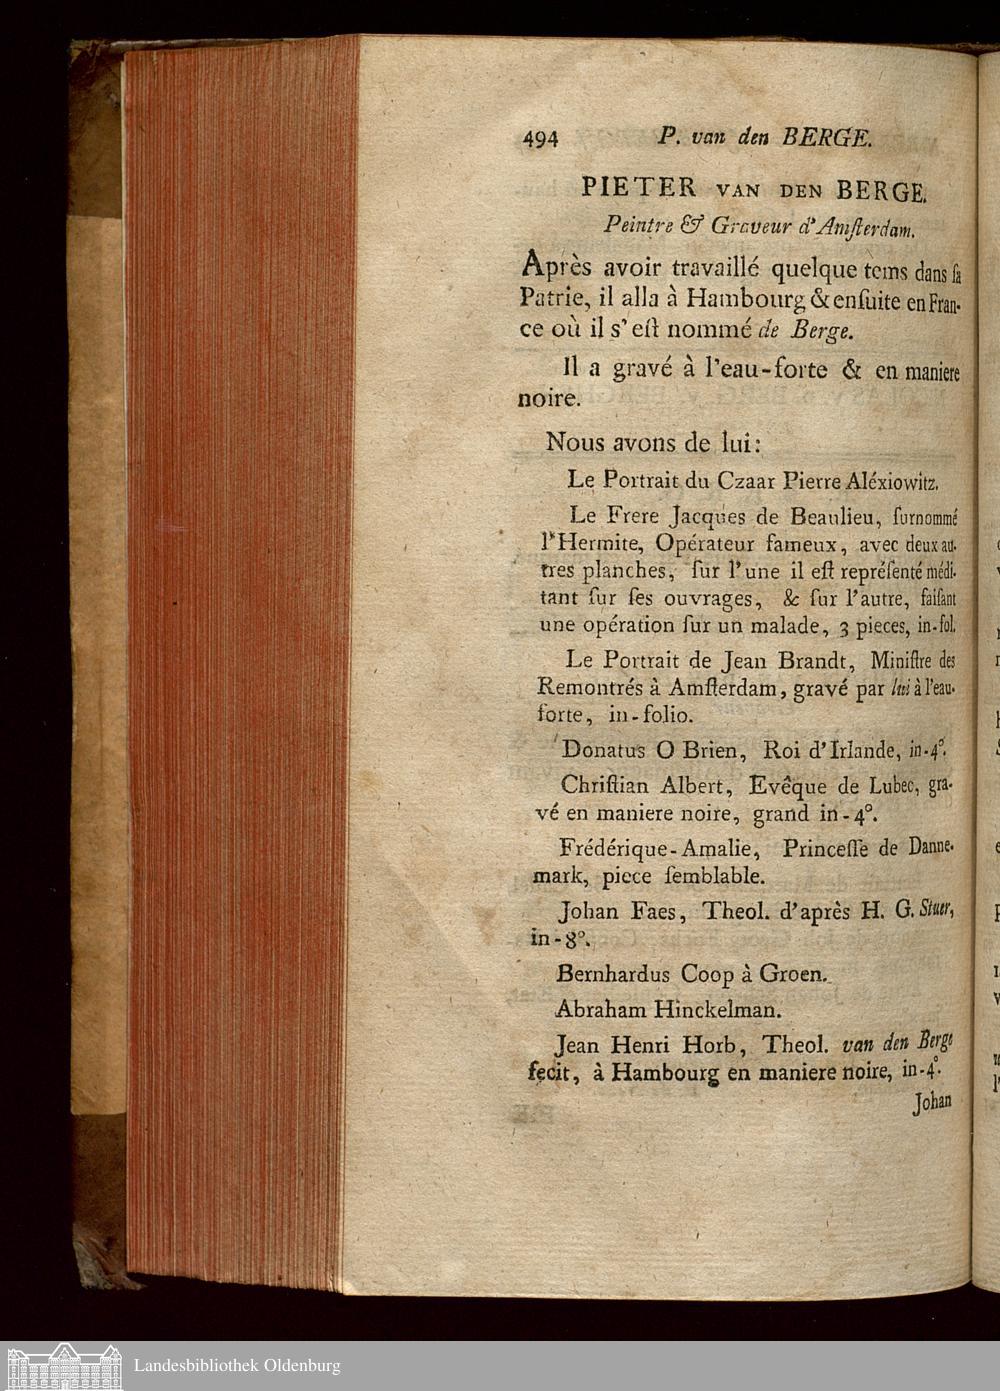 494 P. van den BERGE.
PIETER VAN DEN BERGE.
Peintre & Graveur d'Amſterdam.
Après avoir travaillé quelque tems dans ſa
Patrie, il alla à Hambourg & enſuite en Fran-
ce où il s'eſt nommé de Berge.
Il a gravé à l'eau-forte & en maniere
noire.
Nous avons de lui:
Le Portrait du Czaar Pierre Aléxiowitz.
Le Frere Jacques de Beaulieu, ſurnommé
l'Hermite, Opérateur fameux, avec deux au-
tres planches, ſur l'une il eſt repréſenté médi-
tant ſur ſes ouvrages, & ſur l'autre, faiſant
une opération ſur un malade, 3 pieces, in-fol.
Le Portrait de Jean Brandt, Miniſtre des
Remontrés à Amſterdam, gravé par lui à l'eau-
forte, in-folio.
Donatus O Brien, Roi d'Irlande, in-4°.
Chriſtian Albert, Evêque de Lubec, gra-
vé en maniere noire, grand in-4°.
Frédérique-Amalie, Princeſſe de Danne-
mark, piece ſemblable.
Johan Faes, Theol. d'après H. G. Stuer,
in-8°.
Bernhardus Coop à Groen.
Abraham Hinckelman.
Jean Henri Horb, Theol. van den Berge
fecit, à Hambourg en maniere noire, in-4°.
Johan
Landesbibliothek Oldenburg